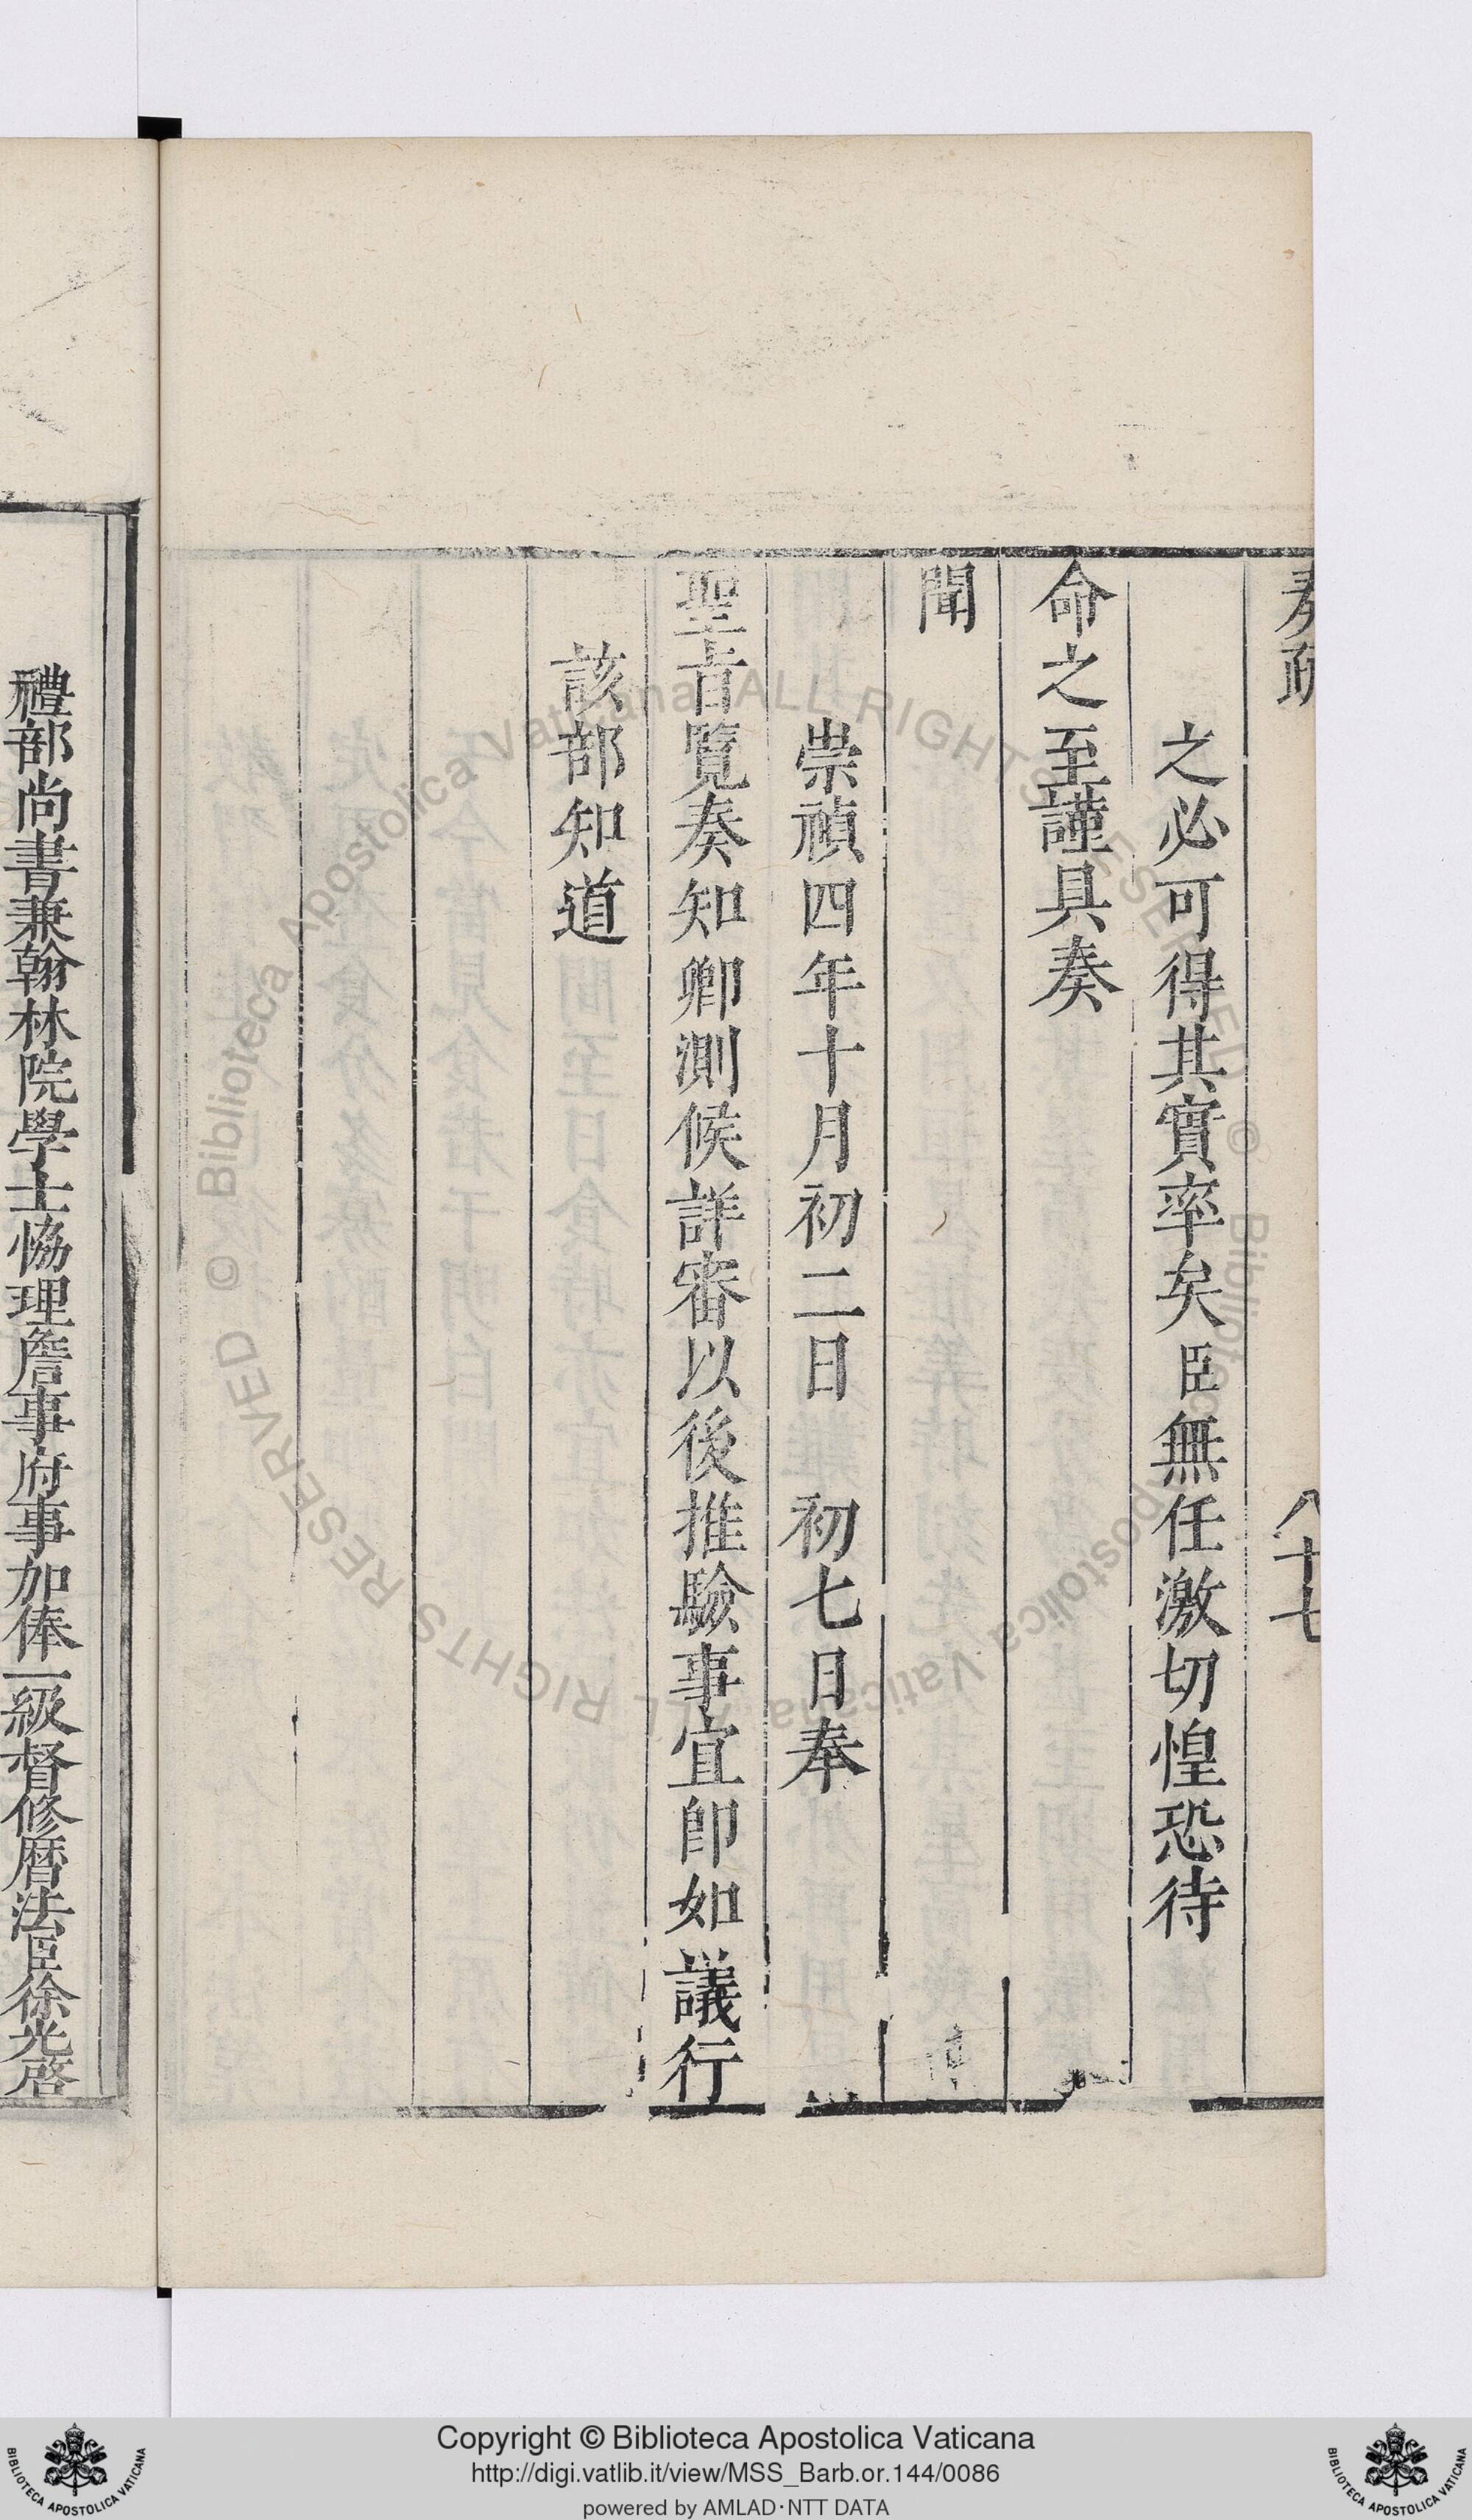 奏疏
八十七
之必可得其實率矣臣無任激切惶恐待
命之至謹具奏
聞
崇禎四年十月初二日 初七日奉
聖旨覽奏知卿測候詳審以後推驗事宜卽如議行
該部知道
禮部尚書兼翰林院學士恊理詹事府事加俸一級督修曆法臣徐光啓
© Biblioteca Apostolica Vaticana ALL RIGHTS RESERVED © Biblioteca Apostolica Vaticana ALL RIGHTS RESERVED
Copyright © Biblioteca Apostolica Vaticana
http://digi.vatlib.it/view/MSS_Barb.or.144/0086
powered by AMLAD·NTT DATA
BIBLIOTECA APOSTOLICA VATICANA
BIBLIOTECA APOSTOLICA VATICANA